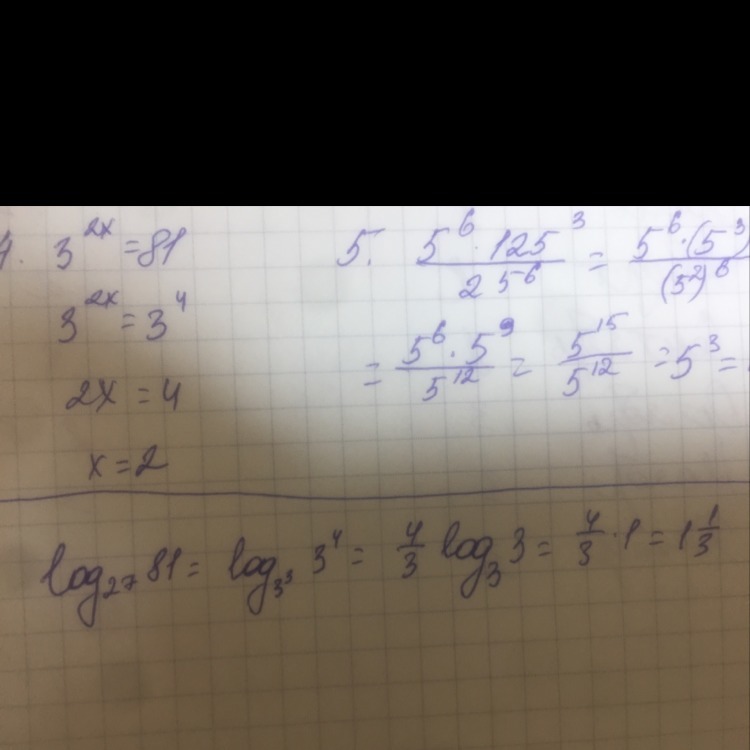 4. 3^{2x} = 81
3^{2x} = 3^4
2x = 4
x = 2
5. \frac{5^6 \cdot 125^3}{25^6} = \frac{5^6 \cdot (5^3)}{(5^2)^6}
= \frac{5^6 \cdot 5^9}{5^{12}} = \frac{5^{15}}{5^{12}} = 5^3 =
log_{27} 81 = log_{3^3} 3^4 = \frac{4}{3} log_3 3 = \frac{4}{3} \cdot 1 = 1\frac{1}{3}